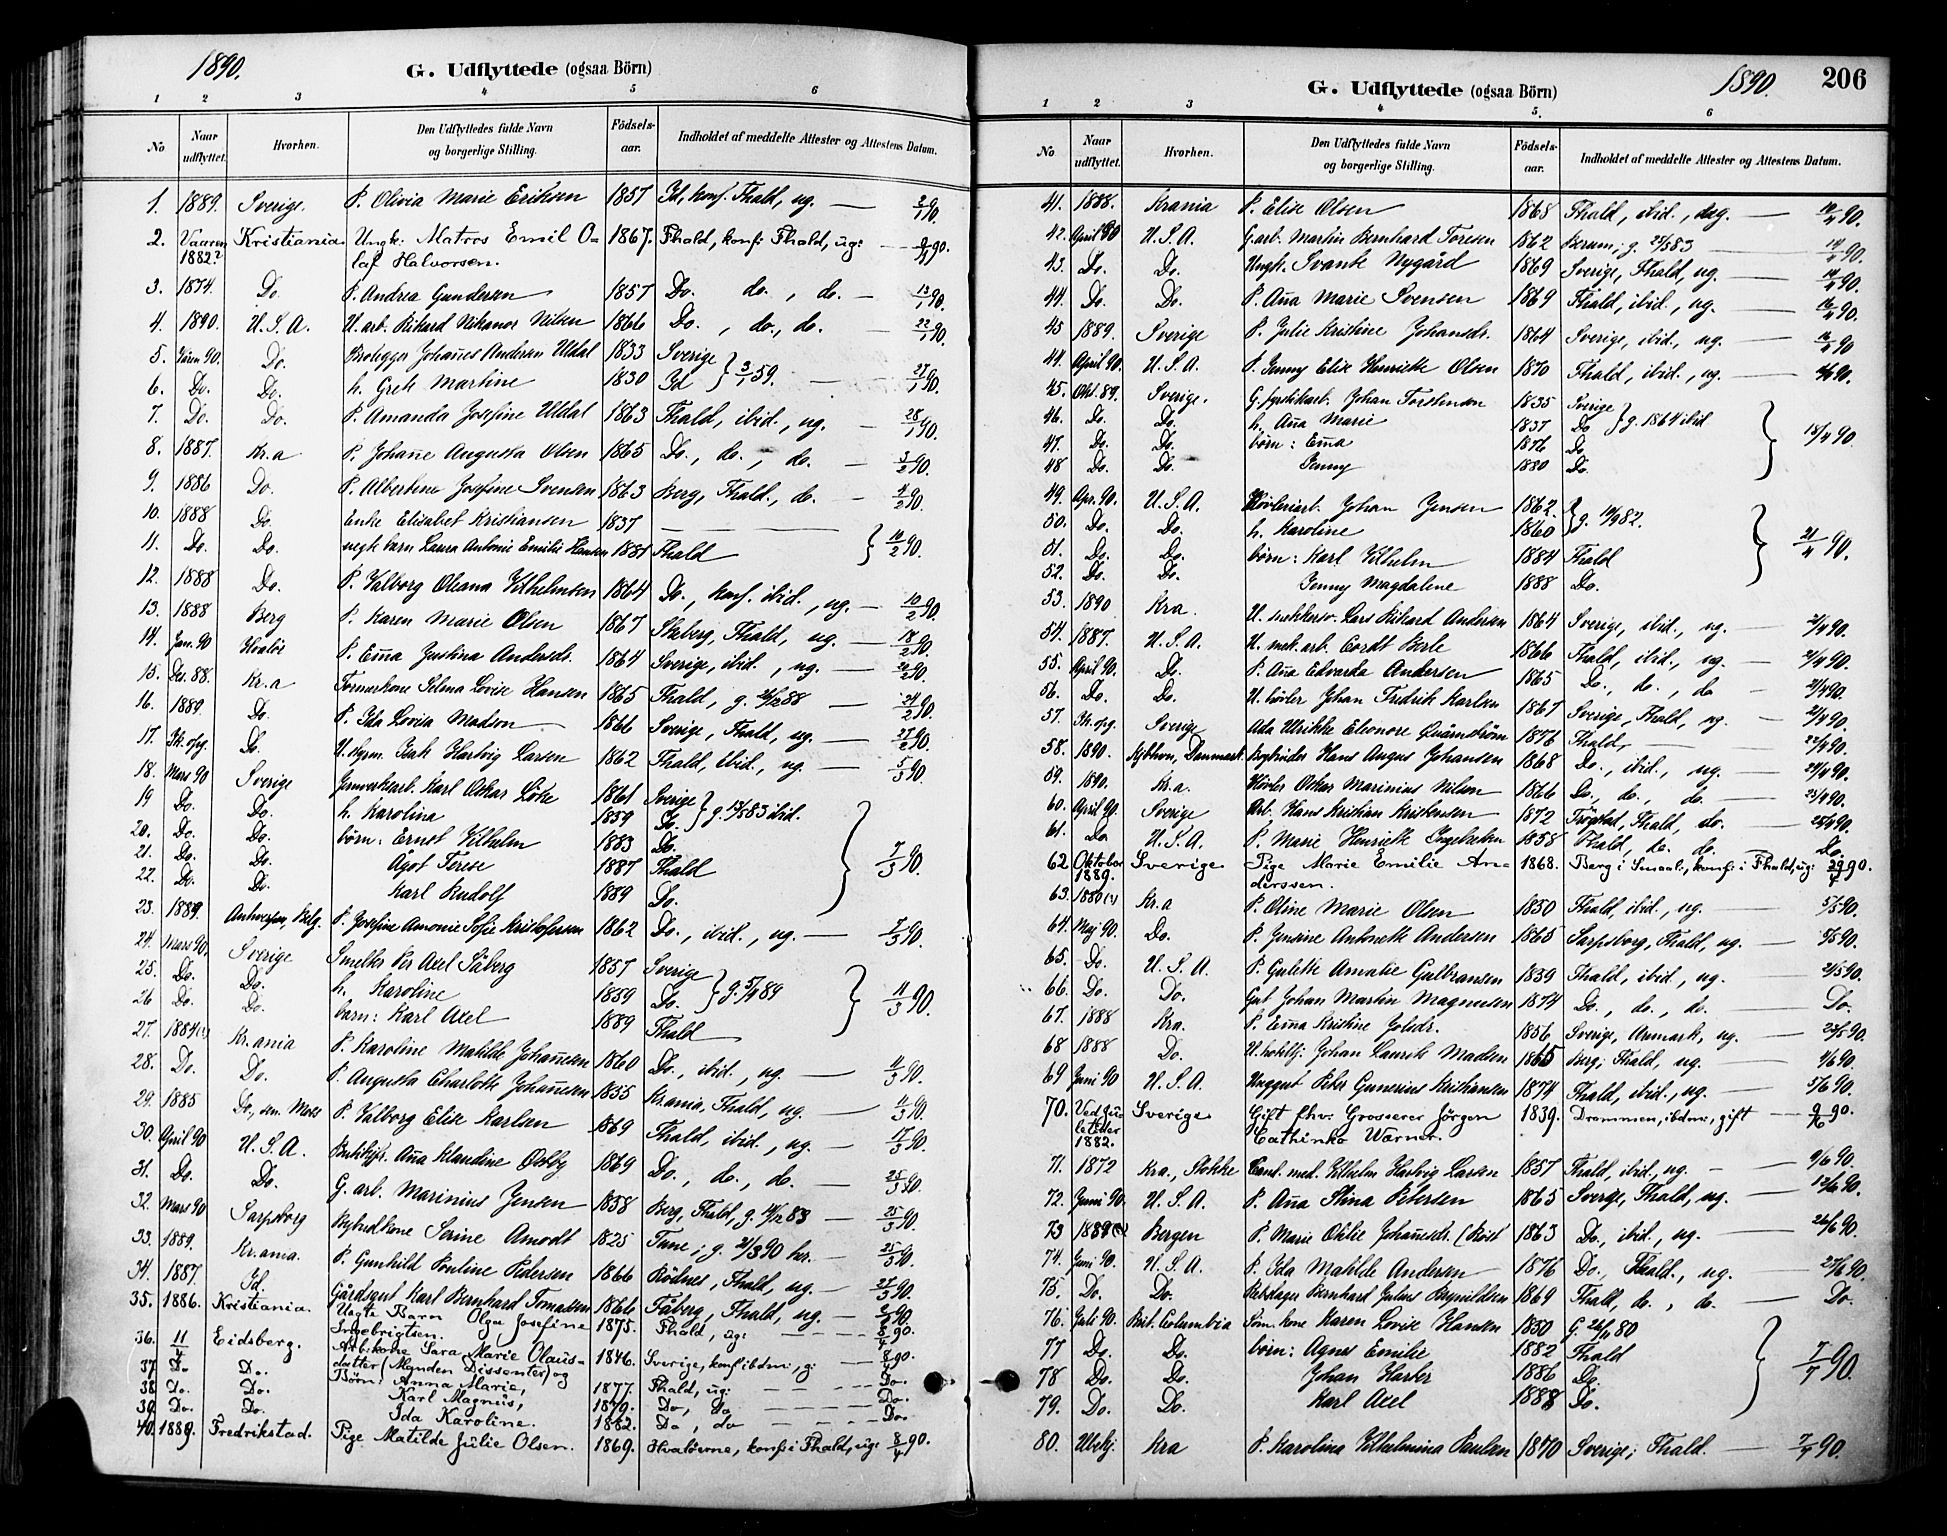 1890.
G. Udflyttede (ogsaa Börn)
1 2 3 4 5 6
No Naar udflyttet. Hvorhen. Den Udflyttedes fulde Navn og borgerlige Stilling. Födselsaar. Indholdet af meddelte Attester og Attestens Datum.
1. 1889. Sverige. P. Olivia Marie Eriksen 1857 Id, konf. Fhald, ug. — 2/1 90.
2. Vaaren 1882? Kristiania. Ungk: Matros Emil O- 1867. Fhald, konf: Fhald, ug: — 90.
laf Halvorsen.
3. 1874. Do. P. Andrea Gundersen 1857 Do. do., do. — 13/1 90.
4. 1890. U.S.A. U. arb. Rikard Nikanor Nilsen 1866 Do., do., do. — 22/1 90.
5. 90. Do. Brolegger Johañes Andersen Uldal 1833 Sverige
6. Do. Do. h. Grete Martine 1830 Id } 3/1 59. — 27/1 90.
7. Do. Do. P. Amanda Josefine Uldal 1863 Fhald, ibid., ug. — 28/1 90.
8. 1887. Kr.a P. Johañe Augusta Olsen 1865 Do., do., do. — 3/2 90.
9. 1886 Do. P. Albertine Josefine Svensen 1863 Berg, Fhald., do. — 4/2 90.
10. 1888 Do. Enke Elisabet Kristiansen 1837 —
11. Do. Do. uegte barn Laura Antonie Emilie Hansen 1881 Fhald } 10/2 90.
12. 1888 Do. P. Valborg Oleana Vilhelmsen 1864 Do., konf. ibid., ug. — 10/2 90.
13. 1888 Berg P. Karen Marie Olsen 1867 Skeberg, Fhald, ug. — 18/2 90.
14. Jan. 90 Hvalös P. Em̃a Justina Andersdr. 1864 Sverige, ibid., ug. — 20/2 90.
15. Des. 88. Kr.a Formerkone Selma Lovise Hansen 1865 Fhald, g. 26/12 88 — 21/2 90.
16. 1889. Do. P. Ida Lovisa Madsen 1866 Sverige, Fhald, ug. — 27/2 90.
17. Ik. opg. Do. U. Isak Hartvig Larsen 1862 Fhald, ibid., ug. — 5/3 90.
18. Mars 90 Sverige Jernverksarb. Karl Oskar Löke 1861 Sverige
19 Do. Do. h. Karolina 1859 Do. } g. 83 ibid.
20. Do. Do. börn: Ernst Vilhelm 1883 Do.
21. Do. Do. Agot Terese 1887 Fhald } 7/3 90.
22. Do. Do. Karl Rudolf 1889 Do.
23. 1889. Antwerpen, Belg. P. Josefine Amonie Sofie Kristofersen 1862 Do., ibid., ug. — 7/3 90.
24. Mars 90. Sverige Smelter Per Axel Såberg 1857 Sverige
25. Do. Do. h. Karoline 1859 Do. } g. 5/4 89 } 11/3 90.
26 Do. Do. barn: Karl Axel 1889 Fhald
27. 1884(?) Kr.ania P. Karoline Matilde Johañesen 1860 Do., ibid., ug. — 11/3 90.
28. Do. Do. P. Augusta Charlotte Johañesen 1855 Krania, Fhald, ug. — 11/3 90.
29. 1885 Do., sen. Moss P. Valborg Elise Karlsen 1869 Fhald, ibid., ug. — 17/3 90.
30. April 90 U.S.A. Butikkjt. Aña Klaudine Ostby 1869 Do., do., do. — 25/3 90.
31. Do. Do. G. arb. Marinius Jensen 1858 Berg, Fhald, g. 83 — 25/3 90.
32. Mars 90 Sarpsborg Serine Amodt 1825 Tune; g. 21/3 90 her. — 25/3 90.
33. 1889. Kr.ania. P. Gunhild Pouline Pedersen 1866 Rödnes, Fhald, ug. — 27/3 90.
34. 1887. Id. Gårdsgut Karl Bernhard Tomassen 1866 Fåberg, Fhald, ug. — 90.
35. 1886. Kristiania. Uægt. Barn Olga Josefine 1875. Fhald, ug: — 8/4 90.
Ingebrigtsen.
36. 11/4 Eidsberg. Arb:kone Sara Marie Olaus- 1846. Sverige, konf: ibdm:, g: — 8/4 90.
37. Do Do. datter (Manden Dissenter) og
Börn: Anna Marie, 1877. Fhald, ug: — Do.
38. Do. Do. Karl Magnus, 1879. Do, Do — Do.
39 Do. Do. Ida Karoline. 1882. Do, do — Do.
40. 1889. Fredrikstad. Pige Matilde Julie Olsen. 1869. Hvalöerne, konf: i Fhald, ug: 8/4 90.
G. Udflyttede (ogsaa Börn)
1890. 206
1 2 3 4 5. 6
No Naar udflyttet. Hvorhen. Den Udflyttedes fulde Navn og borgerlige Stilling. Födselsaar. Indholdet af meddelte Attester og Attestens Datum.
41. 1888. Krania P. Elise Olsen 1868 Fhald, ibid., ug. — 10/4 90.
42. April 90 U.S.A. G. arb. Martin Bernhard Toresen 1862 Berum; g. 83 — 14/4 90.
43. Do. Do. Ungk. Svante Nygård 1869 Sverige, Fhald, ug. — 14/4 90.
44. Do. Do. P. Aña Marie Svensen 1869 Fhald, ibid., ug. — 16/4 90.
45 1889. Sverige P. Julie Kristine Johansdr. 1864 Sverige, ibid., ug. — 16/4 90
44. April 90. U.S.A. P. Jenny Elise Henriette Olsen 1870 Fhald, ibid., ug. — 90.
45. Okt. 89. Sverige. G. Johan Torstensen 1835 Sverige
46. Do. Do. h. Aña Marie 1837 Do } g. 1864 ibid
47. Do. Do. börn: Em̃a 1876 Do } 18/4 90.
48 Do. Do. Jenny 1880 Do.
49. Apr. 90. U.S.A. Hövleriarb. Johan Jensen 1862.
50. Do. Do. h. Karoline 1860 } g. 82.
51. Do. Do. börn: Karl Vilhelm 1884 Fhald } 21/4 90.
52. Do. Do. Jenny Magdalene 1888 Do.
53. 1890 Kra. U. Lars Rikard Andersen 1864 Sverige, ibid., ug. — 21/4 90.
54. 1887. U.S.A. U. mek. arb. Cordt Berle 1866 Fhald, ibid., ug. — 21/4 90.
55. April 90. Do. P. Aña Edvarda Andersen 1865 Do., do., do — 21/4 90.
56. Do. Do. U. hövler Johan Fredrik Karlsen 1867 Sverige, Fhald, ug. — 21/4 90.
57. Ik. opg. Sverige Ada Ulrikke Eleonore Quärnström 1876 Fhald, — 22/4 90.
58. 1890. Kjöbhvn, Danmark. Bogbinder Hans August Johansen 1868 Do., ibid., ug. — 24/4 90.
59. 1890. Kr.a. Hövler Oskar Marinius Nilsen 1866 Do., do., do. — 25/4 90.
60. April 90. Sverige Arb. Hans Kristian Kristensen 1872 Trögstad, Fhald, do. — 25/4 90.
61. Do U.S.A. P. Marie Henriette Ingebretsen 1858 Fhald, do. do. — Do.
62 Oktober 1889. Sverige Pige Marie Emilie An- 1868. Berg i Smaal:, konf: i Fhald, ug: 29/4 90.
derssen.
63. 1880(?) Kr.a P. Oline Marie Olsen 1850 Fhald, ibid., ug. — 5/5 90.
64. Maj 90. Do. P. Jensine Antonette Andersen 1865 Sarpsborg, Fhald, ug. — /5 90.
65. Do. U.S.A. P. Gulette Amalie Gulbransen 1839 Fhald, ibid., ug. 21/5 90.
66. Do. Do. Gut Johan Martin Magnussen 1874 Do., do., do. — Do.
67. 1888 Kra. P. Em̃a Kristine Johsdr. 1856 Sverige, Aremark, ug. — 23/5 90.
68 1888 Do. U. Johan Laurits Madsen 1865 Berg, Fhald, ug. — 4/6 90.
69 Juni 90 U.S.A. Unggut Peter Gunerius Kristiansen 1874 Fhald, ibid., ug. — 5/6 90.
70. Ved Juletider 1882. Sverige Gift fhv: Grosserer Jörgen 1839. Drammen, ibdm:, gift — 9/6 90.
Cathinko Warner.
71. 1872 Kra., Stokke Cand. med. Vilhelm Hartvig Larsen 1857 Fhald, ibid., ug. — 9/6 90.
72. Juni 90. U.S.A. P. Aña Stina Petersen 1865 Sverge, Fhald, ug. — 12/6 90.
73 1889(?) Bergen P. Marie Otilie Johañesdr. 1863 Do., ibid., ug. — 26/6 90.
74. Juni 90. U.S.A. P. Ida Matilde Andersen 1876 Do., Fhald., ug. — 27/6 90.
75. Do. Do. Bernhard Julius 1869 Fhald, do., do. — Do.
76. Juli 90. Brit. Columbia Söm. kone Karen Lovise Hansen 1850 G. 26/11 80
77 Do. Do. börn: Agnes Emilie 1882 Fhald
78. Do. Do. Johan 1886 Do. } 7/7 90.
79. Do. Do. Karl Axel 1888 Do.
80. Ubekj. Kra P. Karolina Vilhelmina Paulsen 1870 Sverige; Fhald. — 7/7 90.